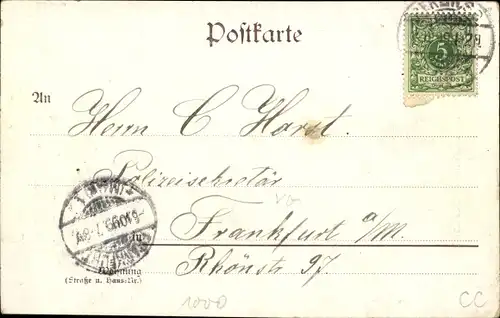 Postkarte
5
REICHSPOST
An
Herrn C Horst
Polizeisekretär
VG
in Frankfurt a/M.
Wohnung Rhönstr. 97
(Straße u. Haus-Nr.)
1000
CC